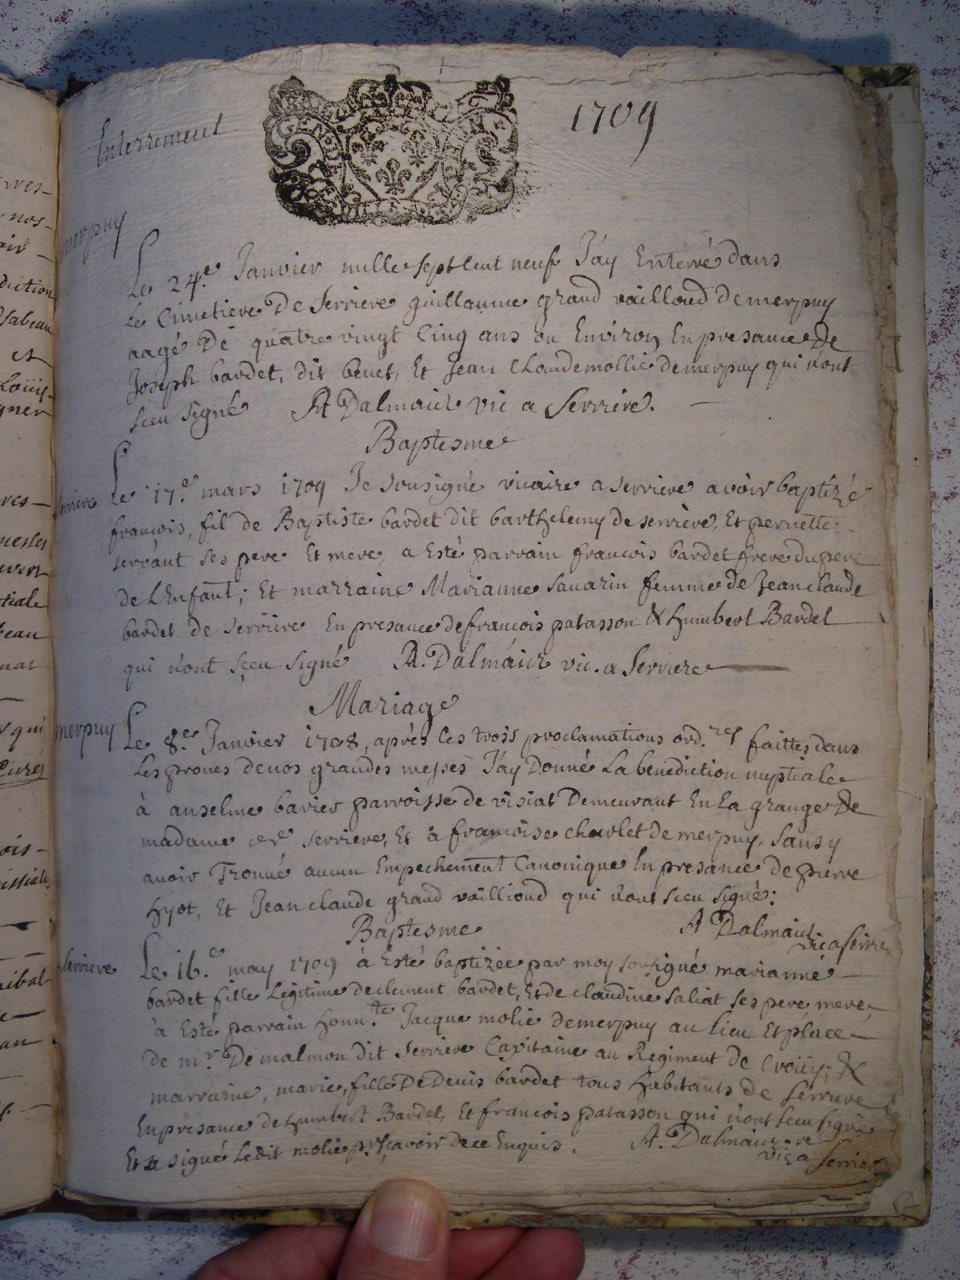 1709
Enterrement
merpuy
Le 24.e Janvier mille sept cent neuf J'ay Enterré dans
Le Cimetiere De Serriere guillaume grand vailloud De merpuy
aagé De quatre vingt Cinq ans ou Environ En presance De
Joseph bardet, dit benet, Et Jean Claude mollie de merpuy qui n'ont
sceu signé A Dalmaiz vic a Serriere.
Baptesme
serriere
Le 17.e mars 1709 Je sousigné vicaire a serriere avoir baptizé
francois, fil de Baptiste bardet dit barthelemy de serriere, Et pernette
servant ses pere Et mere a Esté parrain francois bardet frere du pere
de L'Enfant; Et marraine Marianne savarin femme de Jean claude
bardet de serriere En presance de francois patasson & humbert Bardet
qui n'ont sceu signé A. Dalmaiz vic. a Serriere
Mariage
merpuy
Le 8.e Janvier 1708, après les trois proclamations ord.res faittes dans
Les prones de nos grandes messes J'ay Donné La benediction nuptiale
à anselme bavier parroisse de visiat Demeurant En La grange de
madame de serriere, Et à francoise charlet de merpuy, sans y
avoir Trouvé aucun Empechement Canonique En presance de pierre
hyot, Et Jean claude grand vaillioud qui n'ont sceu signé:
A Dalmaiz
vic a serriere
Baptesme
serriere
Le 16.e may 1709 à Esté baptizée par moy sousigné marianne
bardet fille Legitime de clement bardet, Et de claudine saliat ses pere mere
à Esté parrain honn.te Jacque molie de merpuy au Lieu Et place
de m.r De malmon dit Serriere Capitaine au Regiment de Croüy; &
marraine, marie, fille De Denis bardet tous habitants de Serriere
En presance de humbert Bardet, Et francois patasson qui n'ont sceu signé
Et a signé Ledit molie p.r scavoir de ce Enquis. A. Dalmaiz
vic a serriere